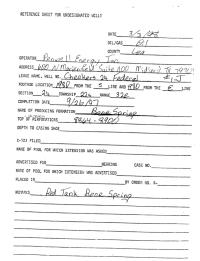 REFERENCE SHEET FOR UNDESIGNATED WELLS
DATE 3/5/98
OIL/GAS Oil
COUNTY Lea
OPERATOR Penwell Energy Inc.
ADDRESS 600 N Marienfeld Suite 1100 Midland TX
LEASE NAME, WELL NO. Checkers 24 Federal
FOOTAGE LOCATION 1980 FROM THE S LINE AND 1980 FROM THE E LINE
SECTION 24 TOWNSHIP 22s RANGE 32E
COMPLETION DATE 9/26/97
NAME OF PRODUCING FORMATION Bone Spring
TOP OF PERFORATIONS 8864-8900
DEPTH TO CASING SHOE
C-123 FILED
NAME OF POOL FOR WHICH EXTENSION WAS ASKED
ADVERTISED FOR HEARING CASE NO.
NAME OF POOL FOR WHICH EXTENSION WAS ADVERTISED
PLACED IN BY ORDER NO. R-
REMARKS Red Tank Bone Spring